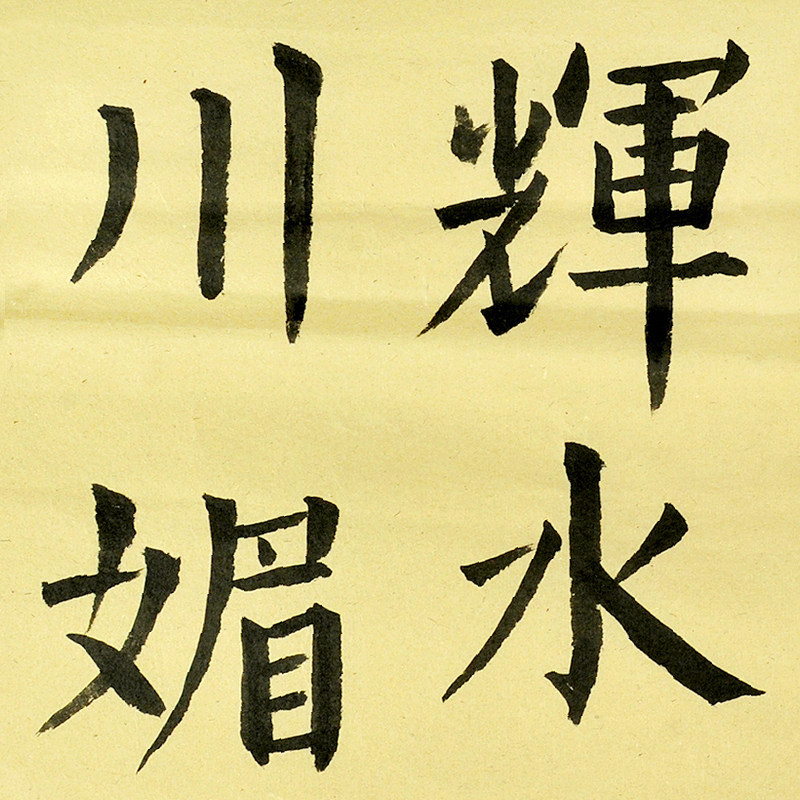 輝水
川媚